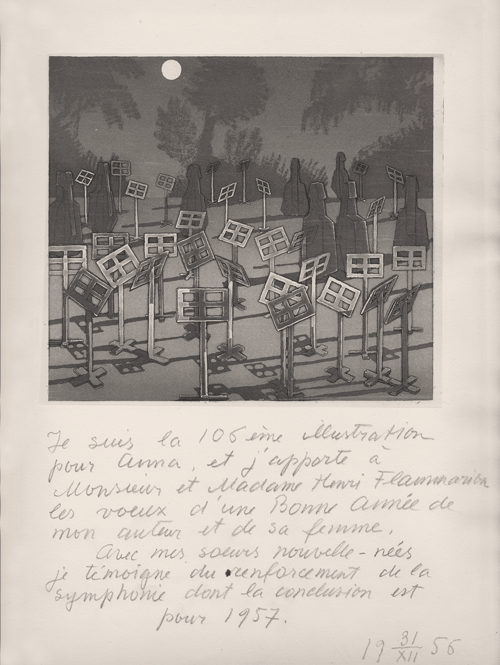 Je suis la 106ème illustration
pour Anna, et j'apporte à
Monsieur et Madame Henri Flammarion
les voeux d'une Bonne Année de
mon auteur et de sa femme.
Avec mes soeurs nouvelle-nées
je témoigne du renforcement de la
symphonie dont la conclusion est
pour 1957.
19 31/XII 56